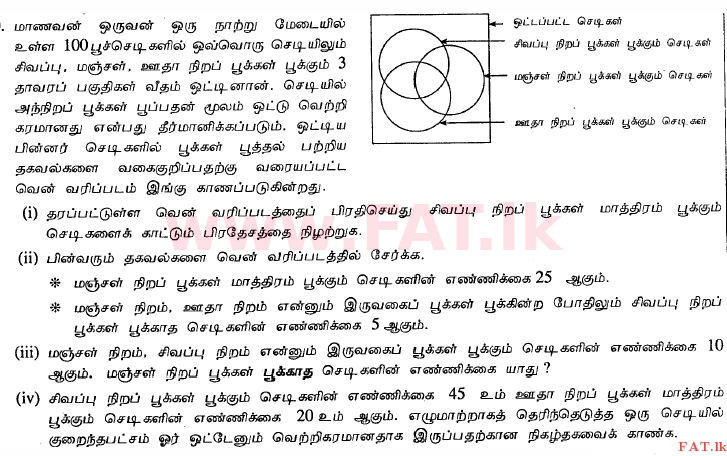 . மாணவன் ஒருவன் ஒரு நாற்று மேடையில்
உள்ள 100 பூச்செடிகளில் ஒவ்வொரு செடியிலும்
சிவப்பு, மஞ்சள், ஊதா நிறப் பூக்கள் பூக்கும் 3
தாவரப் பகுதிகள் வீதம் ஒட்டினான். செடியில்
அந்நிறப் பூக்கள் பூப்பதன் மூலம் ஒட்டு வெற்றி
கரமானது என்பது தீர்மானிக்கப்படும். ஒட்டிய
பின்னர் செடிகளில் பூக்கள் பூத்தல் பற்றிய
தகவல்களை வகைகுறிப்பதற்கு வரையப்பட்ட
வென் வரிப்படம் இங்கு காணப்படுகின்றது.
ஒட்டப்பட்ட செடிகள்
சிவப்பு நிறப் பூக்கள் பூக்கும் செடிகள்
மஞ்சள் நிறப் பூக்கள் பூக்கும் செடிகள்
ஊதா நிறப் பூக்கள் பூக்கும் செடிகள்
(i) தரப்பட்டுள்ள வென் வரிப்படத்தைப் பிரதிசெய்து சிவப்பு நிறப் பூக்கள் மாத்திரம் பூக்கும்
செடிகளைக் காட்டும் பிரதேசத்தை நிழற்றுக.
(ii) பின்வரும் தகவல்களை வென் வரிப்படத்தில் சேர்க்க.
* மஞ்சள் நிறப் பூக்கள் மாத்திரம் பூக்கும் செடிகளின் எண்ணிக்கை 25 ஆகும்.
* மஞ்சள் நிறம், ஊதா நிறம் என்னும் இருவகைப் பூக்கள் பூக்கின்ற போதிலும் சிவப்பு நிறப்
பூக்கள் பூக்காத செடிகளின் எண்ணிக்கை 5 ஆகும்.
(iii) மஞ்சள் நிறம், சிவப்பு நிறம் என்னும் இருவகைப் பூக்கள் பூக்கும் செடிகளின் எண்ணிக்கை 10
ஆகும். மஞ்சள் நிறப் பூக்கள் பூக்காத செடிகளின் எண்ணிக்கை யாது ?
(iv) சிவப்பு நிறப் பூக்கள் பூக்கும் செடிகளின் எண்ணிக்கை 45 உம் ஊதா நிறப் பூக்கள் மாத்திரம்
பூக்கும் செடிகளின் எண்ணிக்கை 20 உம் ஆகும். எழுமாற்றாகத் தெரிந்தெடுத்த ஒரு செடியில்
குறைந்தபட்சம் ஓர் ஒட்டேனும் வெற்றிகரமானதாக இருப்பதற்கான நிகழ்தகவைக் காண்க.
www.FAT.lk
FAT.lk